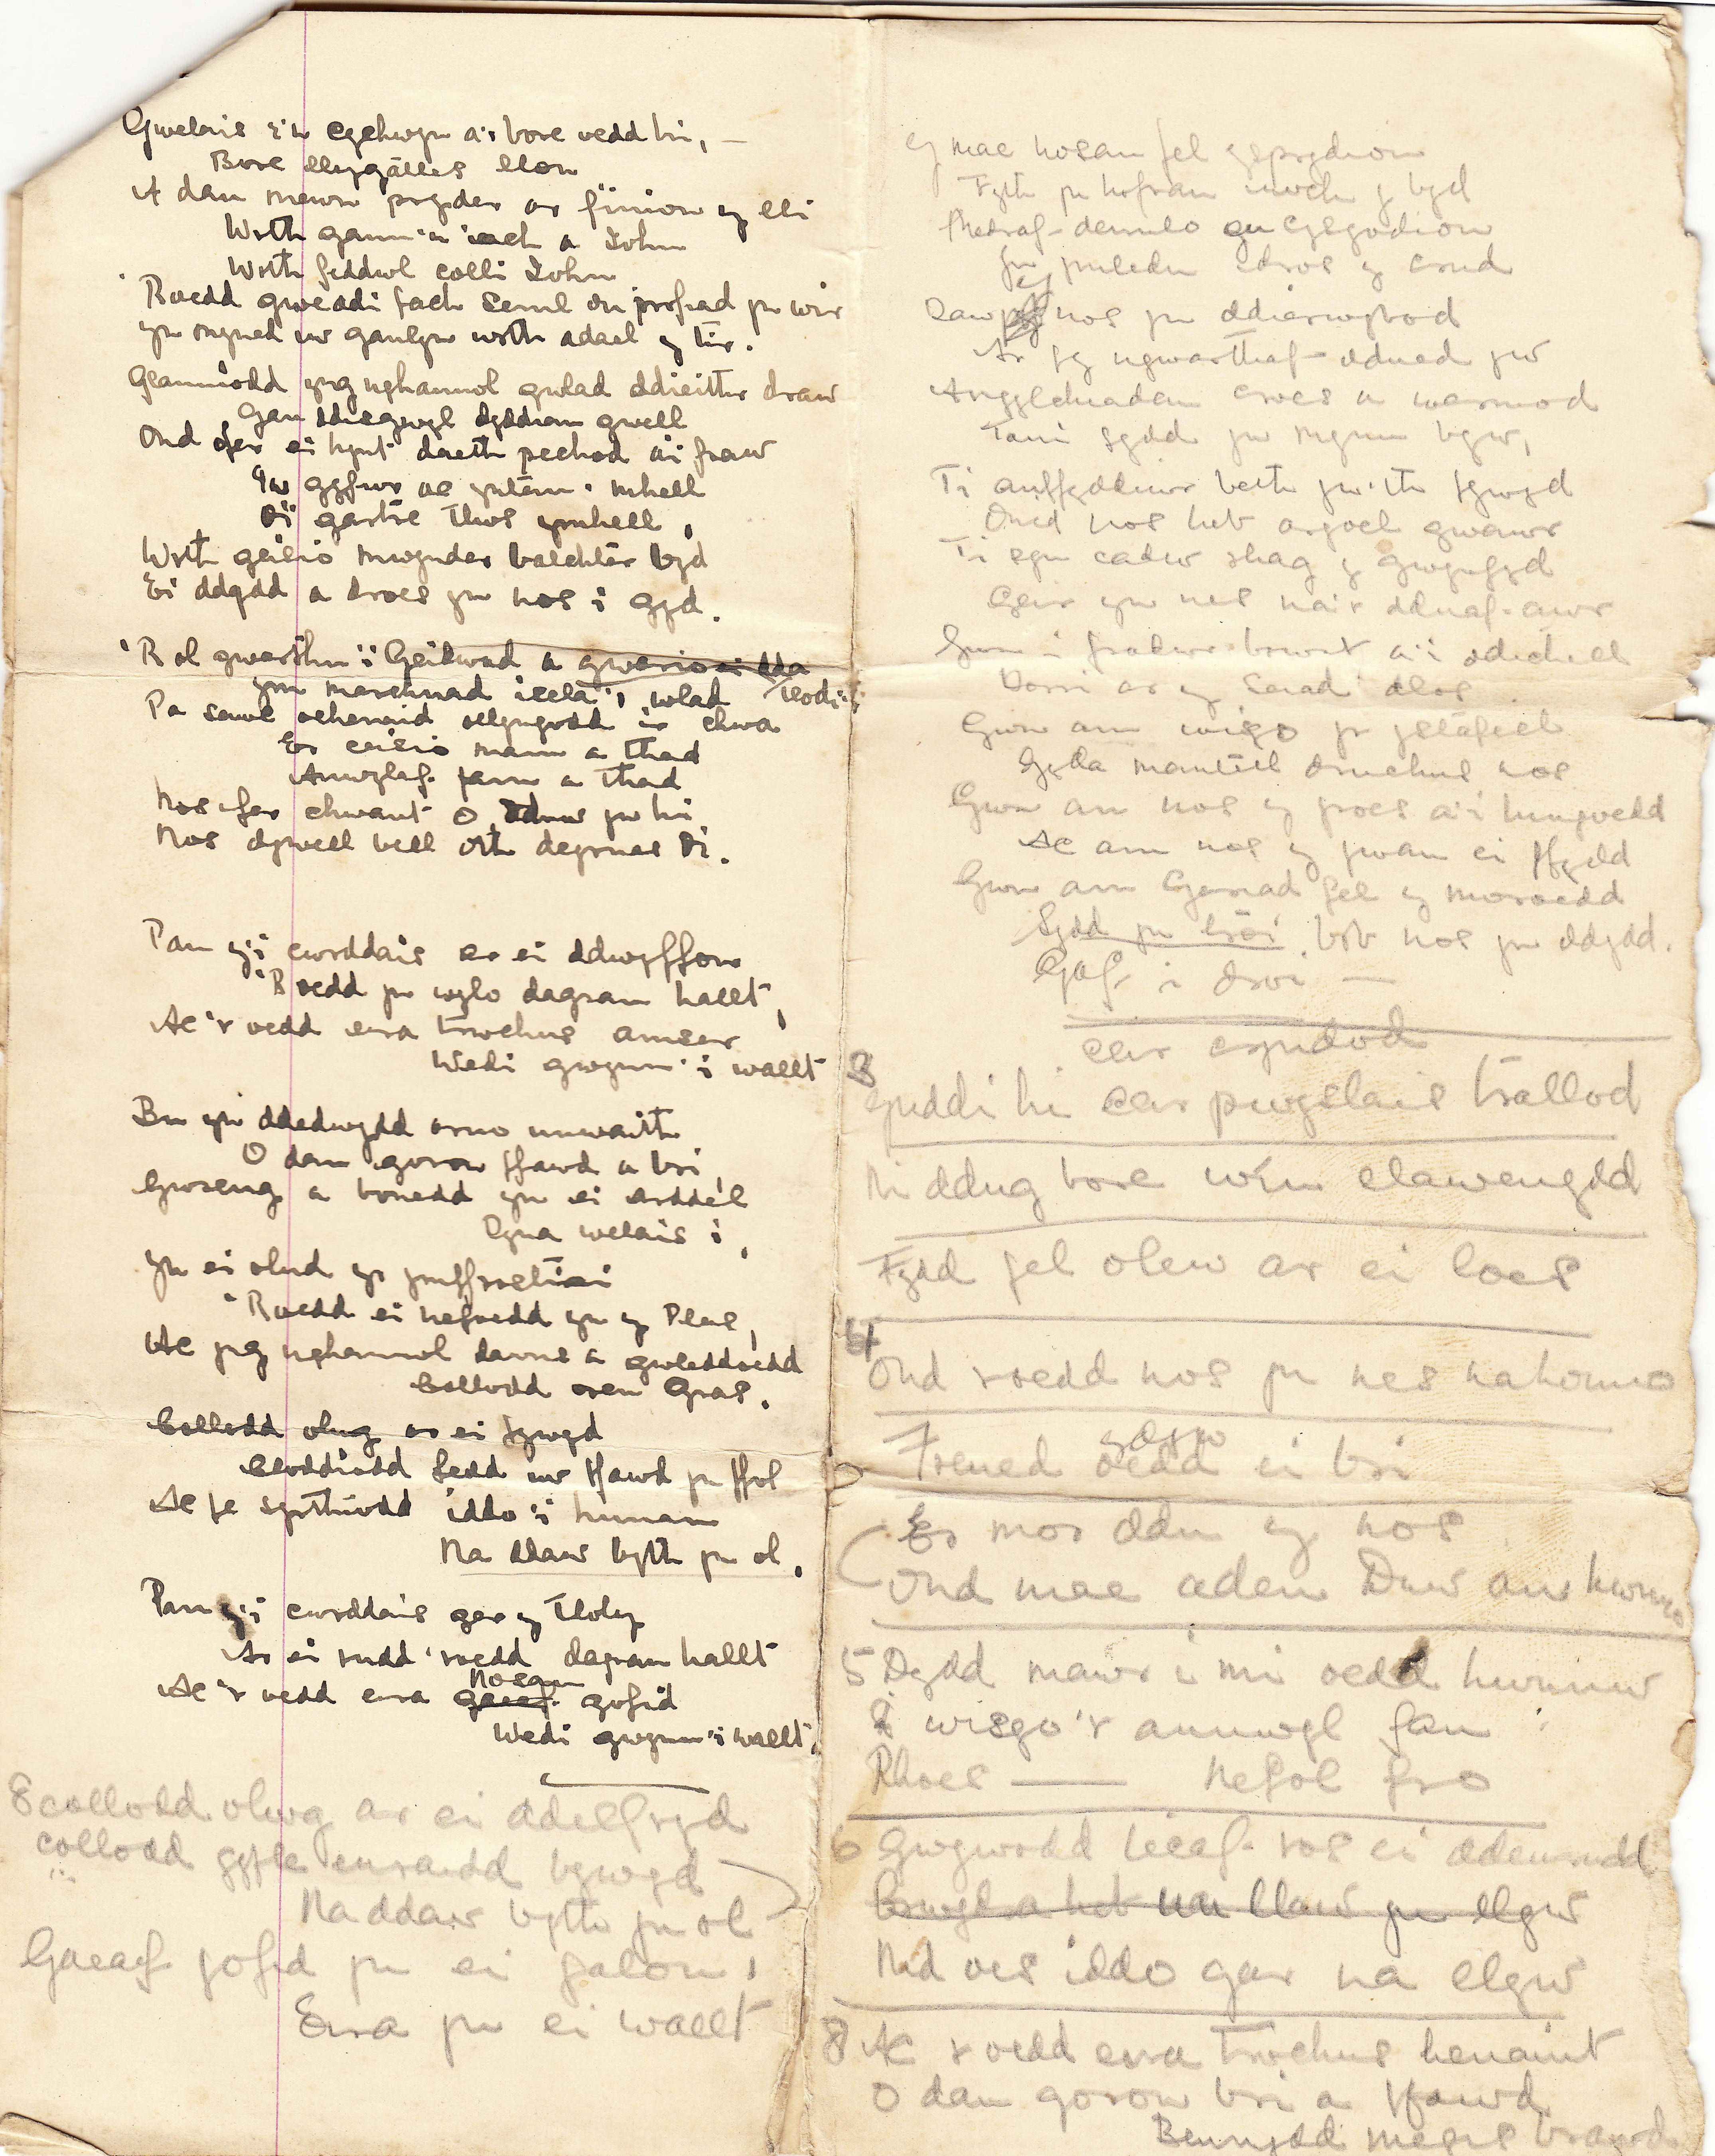 Gwelais i'n cychwyn a'r bore oedd hi, —
Bore llygatlles llon
A dau mewn pryder ar finion y lli
Wrth ganu'n iach a John
Wrth feddwl colli John
Roedd gweddi fach seml ou profiad yn wir
yn myned iw ganlyn wrth adael y tir.
Glaniodd yng nghanol gwlad ddieithr draw
Gan ddisgwyl dyddiau gwell
Ond ofer ei hynt daeth pechod ai fraw
ymhell
Oi gartre tlws ymhell,
Wrth geisio mwynder balchter byd
Ei ddydd a droes yn nos i gyd.
'R ol gwerthu'i Geidwad a gwario ei dda
ym marchnad wlad tlodi
Pa sawl ochenaid ollyngodd i'r chwa
Er ceisio mam a thad
Anwylaf fam a thad
Nos fer chwant O ddu yw hi
Nos dywell bell oth deyrnas Di.
Pan y'i cwrddais ar ei ddwyffon
'Roedd yn wylo dagrau hallt,
Ac 'r oedd eira trwchus amser
Wedi gwynnu'i wallt
Bu yn ddedwydd arno unwaith
O dan goron ffawd a bri
Gwreng a bonedd yn ei arddel
Dyna welais i,
Yn ei olud yr ymffrostiai
'Roedd ei nefoedd yn y Plas,
Ac yng nghanol dawns a gwleddoedd
Collodd oren Gras.
Collodd olwg ar ei fywyd
Cloddiodd fedd iw ffawd yn ffol
Ac fe syrthiodd iddo'i hunan
Na ddaw byth yn ol.
Pan y'i cwrddais ger y Tloty
Ar ei rudd 'roedd dagrau hallt
Nosau
Ac 'r oedd eira gaeaf gofid
Wedi gwynnu'i wallt
8 collodd olwg ar ei ddelfryd
collodd gyfle euraidd bywyd
Na ddaw byth yn ol
Gaeaf gofid yn ei galon,
Eira yn ei wallt
Y mae nosau fel ysprydion
Fyth yn hofran uwch y byd
Medraf deimlo eu cysgodion
yn ymledu dros y crud
Daw nos yn ddiarwybod
Ar fy ngwarthaf ddued yw
Angyleuadau croes a wermod
Tani sydd yn mynnu byw,
Ti anffyddiwr beth yw'th fywyd
Ond nos heb argoel gwawr
Ti sy'n cadw rhag y gwynfyd
Geir yn nes na'r dduaf awr
Gwn i fradwr brwnt a'i ddichell
Dorri ar y Seiad dlos
Gwn am wisgo yr ystafell
Gyda mantell drwchus nos
Gwn am nos y groes a'i hingoedd
Ac am nos y gwan ei ffydd
Gwn am Gariad fel y moroedd
Sydd yn troi bob nos yn ddydd.
Gaf i droi —
ceir cryndod
3
Guddi hi ceir pwyslais trallod
Ni ddug bore win llawenydd
Fydd fel olew ar ei loes
4
Ond roedd nos yn nes na honno
ydyw
Frened oedd ei bri
Er mor ddu yr nos
Ond mae aden Duw am hwnnw
5 Dydd mawr i mi oedd hwnnw
I wisgo'r annwyl fan
Rhoes — Nefol fro
6 Gwywodd lleaf ros ei ddeurudd
Bywyd a heb un llaw yn llyw
Nid oes iddo gar na llyw
8 Ac r oedd eira trwchus henaint
O dan goron bri a ffawd
Beunydd megis brawd